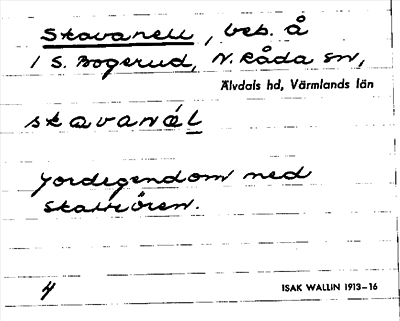 Skavanell, beb. å
1 S. Bogerud, N. Råda sn,
Älvdals hd, Värmlands län
skavanél
Jordegendom med
skattören.
4
ISAK WALLIN 1913-16